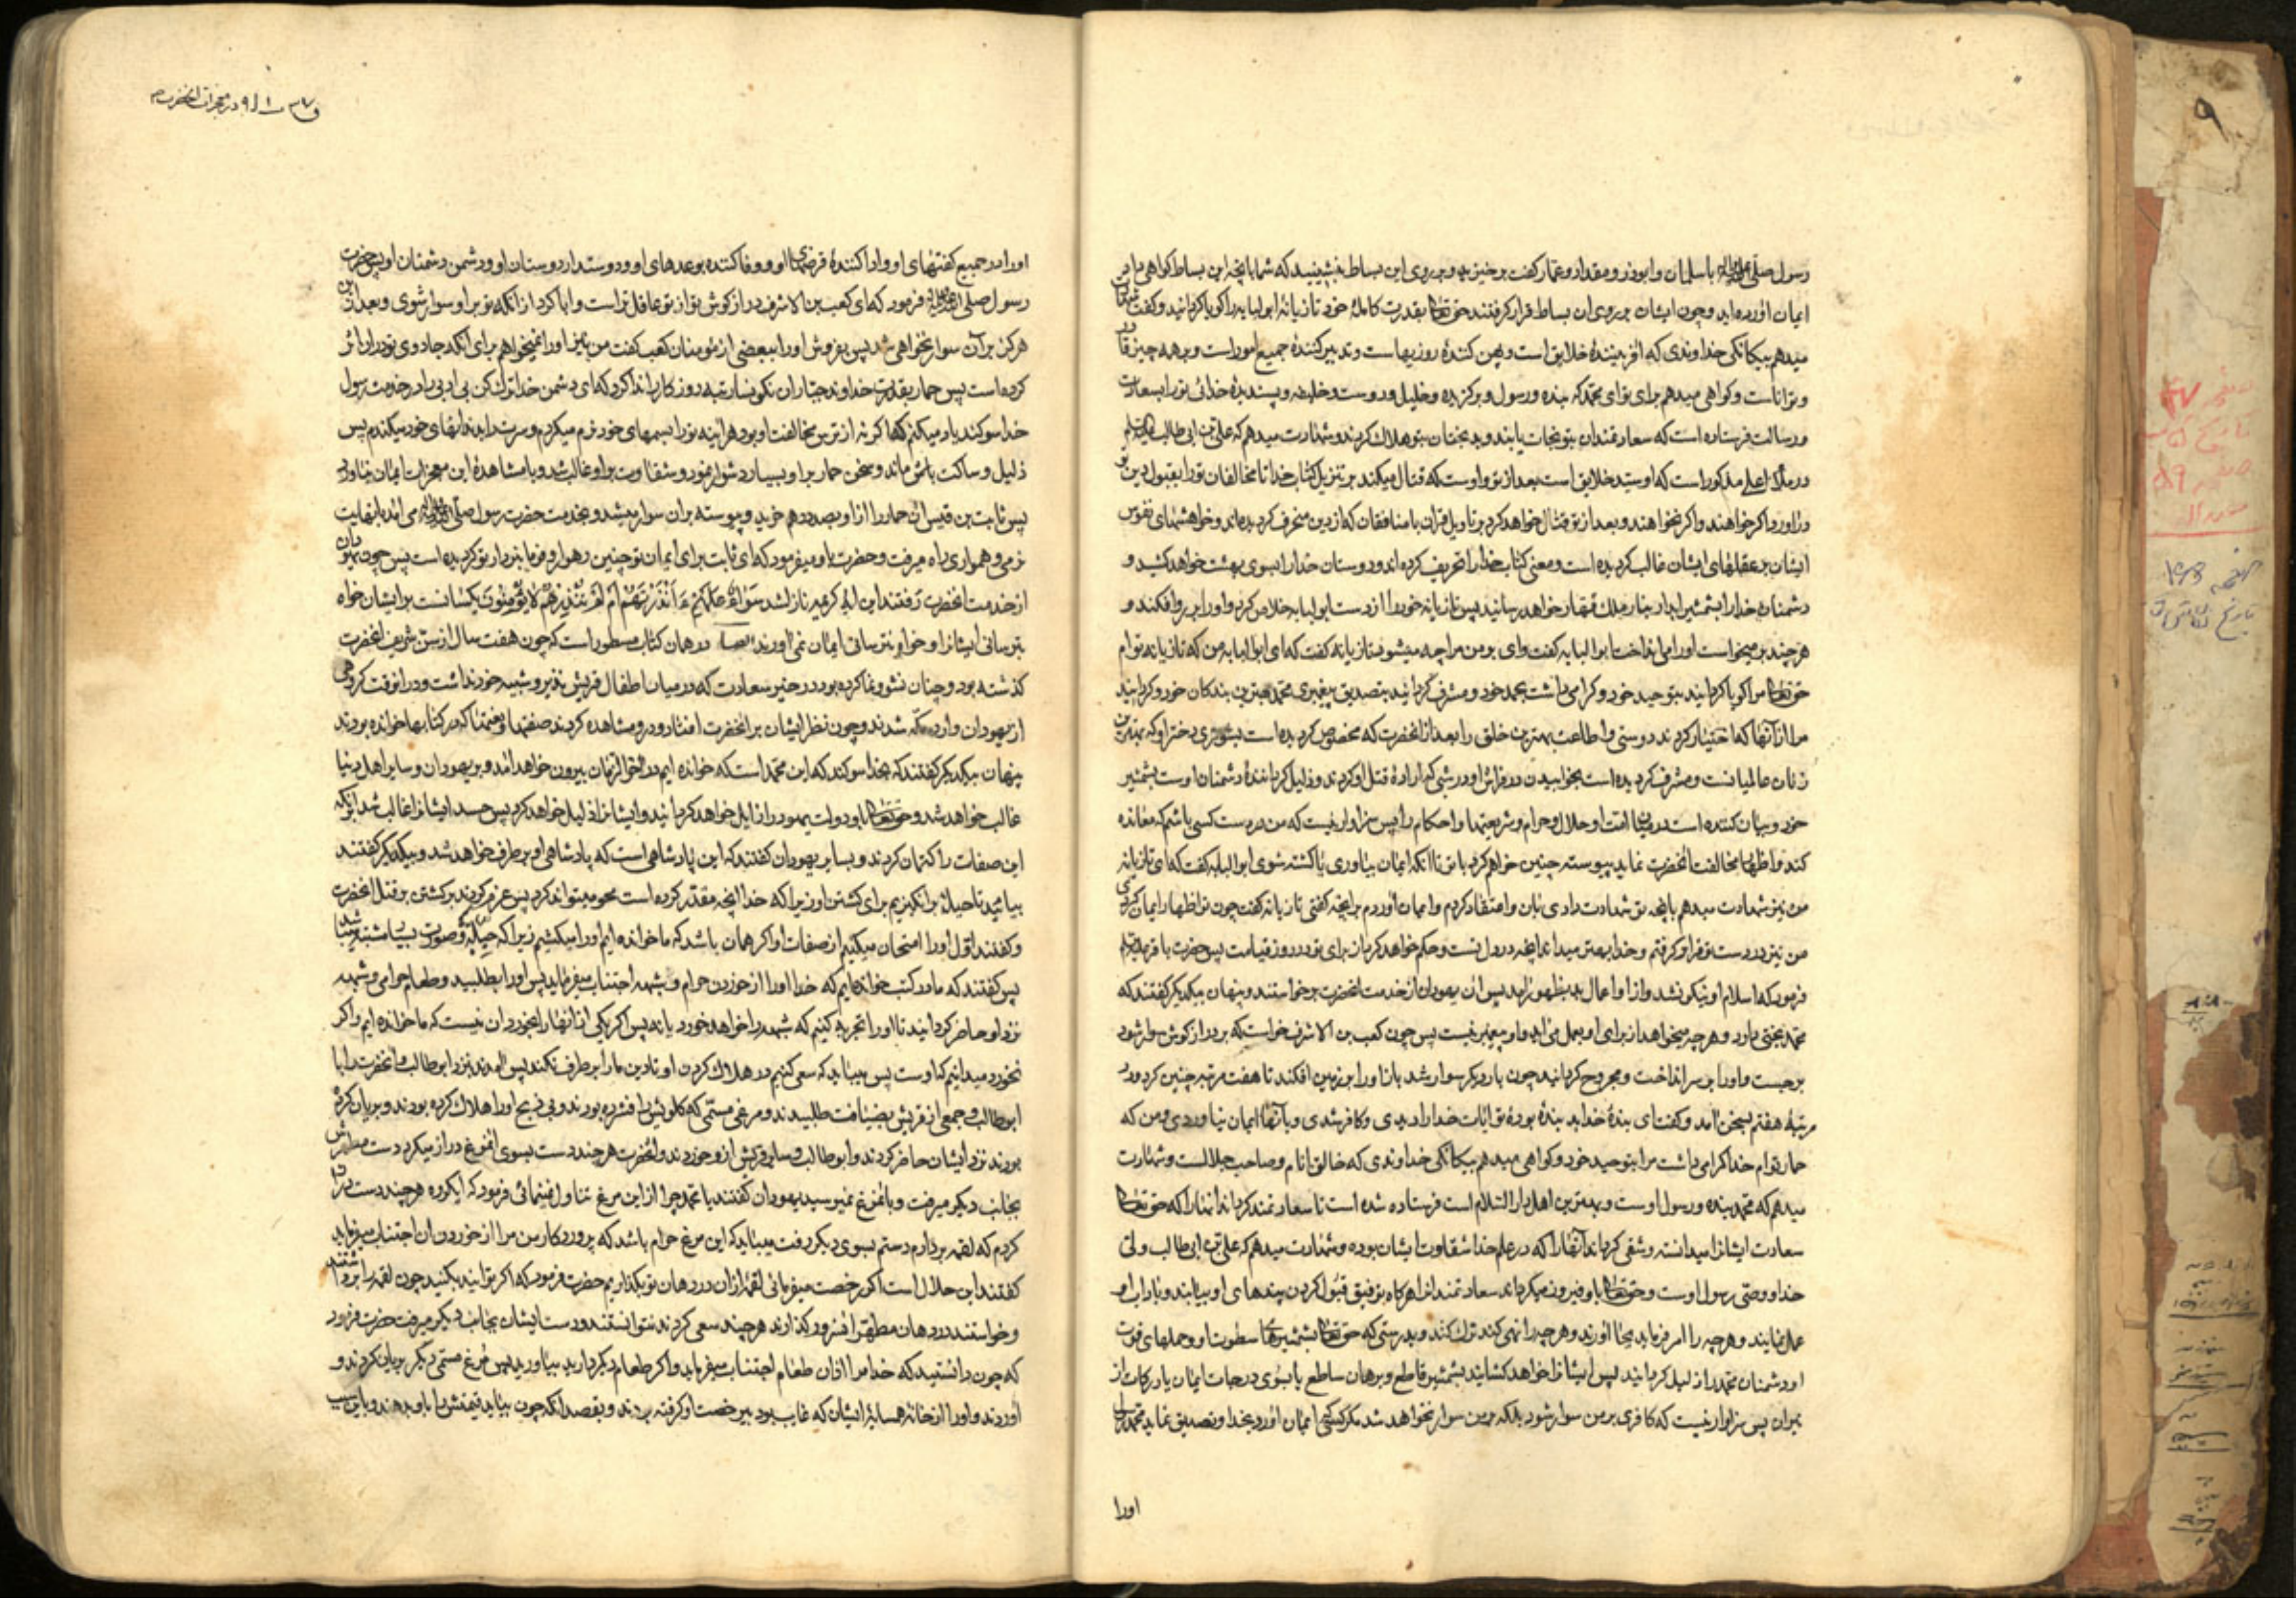 رسول صلی الله علیه و آله با سلمان و ابوذر و مقداد و عمار گفت برخیزید و بر روی این بساط بنشینید که شما بآنچه این بساط گواهی داد
ایمان آورده اید و چون ایشان بر روی آن بساط قرار گرفتند حق تعالی بقدرت کاملهٔ خود تازیانهٔ ابولبابه را گویا گردانید و گفت شهادت
میدهم بیگانگی خداوندی که آفرینندهٔ خلایق است و پهن کنندهٔ روزیها است و تدبیر کنندهٔ جمیع امور است و بر همه چیز قادر
و تواناست و گواهی میدهم برای تو ای محمد که بنده و رسول و برگزیده و خلیل و دوست و خلیفه و پسندیدهٔ خدائی تو را بسفارت
و رسالت فرستاده است که سعادتمندان بتو نجات یابند و بدبختان بتو هلاک گردند و شهادت میدهم که علی بن ابی طالب
در ملأ اعلی مذکور است که او سید خلایق است بعد از تو و اوست که قتال میکند بر تنزیل کتاب خدا تا مخالفان تو را بقبول دین تو
درآورد اگر خواهند و اگر نخواهند و بعد از تو قتال خواهد کرد بر تاویل قرآن با منافقان که از دین منحرف گردیده اند و خواهشهای نفوس
ایشان بر عقلهای ایشان غالب گردیده است و معنی کتاب خدا را تحریف کرده اند و دوستان خدا را بسوی بهشت خواهد کشید و
دشمنان خدا را بشمشیر آبدار بنار ملک قهار خواهد رسانید پس تازیانه خود را از دست ابولبابه خلاص کرد و او را بر رو افکند و
هر چند بر میخواست او را می انداخت ابولبابه گفت وای بر من مرا چه میشود تازیانه گفت که ای ابولبابه من که تازیانه توام
حق تعالی مرا گویا گردانید بتوحید خود و گرامی داشت بحمد خود و مشرف گردانید بتصدیق پیغمبری محمد بهترین بندگان خود و گردانید
مرا از آنها که اختیار کردند دوستی و اطاعت بهترین خلق را بعد از آنحضرت که مخصوص گردیده است بشوهری دختر او که بهترین
زنان عالمیانست و مشرف گردیده است بخوابیدن در فراش او در شبی که ارادهٔ قتل او کردند و ذلیل گردانندهٔ دشمنان اوست بشمشیر
خود و بیان کننده است در میان امت او حلال و حرام و شریعتها و احکام را پس سزاوار نیست که من در دست کسی باشم که معانده
کند و اظهار مخالفت آنحضرت نماید پیوسته چنین خواهم کرد با تو تا آنکه ایمان بیاوری یا کشته شوی ابولبابه گفت که ای تازیانه
من نیز شهادت میدهم بآنچه تو شهادت دادی بآن و اعتقاد کردم و ایمان آوردم بآنچه گفتی تازیانه گفت چون تو اظهار ایمان کردی
من نیز در دست تو قرار گرفتم و خدا بهتر میداند آنچه در دل تست و حکم خواهد کرد بآن برای تو در روز قیامت پس حضرت باقر
فرمود که اسلام او نیکو نشد و از او اعمال بد بظهور آمد پس آن یهودان از خدمت آنحضرت برخواستند و پنهان بیکدیگر گفتند که
محمد بختی دارد و هر چه میخواهد از برای او بعمل می آید و او پیغمبر نیست پس چون کعب بن الاشرف خواست که بر درازگوش سوار شود
برجست و او را بر سر انداخت و مجروح گردانید چون بار دیگر سوار شد باز او را بر زمین افکند تا هفت مرتبه چنین کرد و در
مرتبهٔ هفتم بسخن آمد و گفت ای بندهٔ خدا بد بندهٔ بودهٔ تو آیات خدا را دیدی و کافر شدی و بآنها ایمان نیاوردی و من که
حمار توام خدا گرامی داشت مرا بتوحید خود و گواهی میدهم بیگانگی خداوندی که خالق انام و صاحب جلالست و شهادت
میدهم که محمد بنده و رسول اوست و بهترین اهل دار السلام است فرستاده شده است تا سعادتمند گرداند آنها را که حق تعالی
سعادت ایشانرا میدانسته و شقی گرداند آنها را که در علم خدا شقاوت ایشان بوده و شهادت میدهم که علی بن ابی طالب ولی
خدا و وصی رسول اوست و حق تعالی باو فیروز میگرداند سعادتمندانرا هر گاه توفیق قبول کردن پندهای او بیابند و بآداب او
عمل نمایند و هر چه را امر فرماید بجا آورند و هر چه را نهی کند ترک کنند و بدرستی که حق تعالی بشمشیرهای سطوت او و حملهای قوت
او دشمنان محمد را ذلیل گرداند پس ایشانرا خواهد کشانید بشمشیر قاطع و برهان ساطع یا بسوی درجات ایمان یا درکات از
نیران پس سزاوار نیست که کافری بر من سوار شود بلکه بر من سوار نخواهد شد مگر کسی ایمان آورد بخدا و تصدیق نماید محمد را
اورا
در معجزات آنحضرت
او را در جمیع گفتهای او و ادا کنندهٔ قرضهای او و وفا کننده بوعدهای او و دوستدار دوستان او و دشمن دشمنان او پس حضرت
رسول صلی الله علیه و آله فرمود که ای کعب بن الاشرف درازگوش تو از تو عاقل تر است و ابا کرد از آنکه تو بر او سوار شوی و بعد از این
هرگز بر آن سوار نخواهی شد پس بفروش او را ببعضی از مؤمنان کعب گفت من نیز او را نمیخواهم برای آنکه جادوی تو در او اثر
کرده است پس حمار بقدرت خداوند جبار آن نگونسار تبه روزگار را ندا کرد که ای دشمن خدا ترک کن بی ادبی را در خدمت رسول
خدا سوگند یاد میکنم که اگر نه از ترس مخالفت او بود هر آینه تو را بسمهای خود نرم میکردم و سرت را بدندانهای خود میکندم پس
ذلیل و ساکت ماند و سخن حمار بر او بسیار دشوار نمود و شقاوت بر او غالب شد و با مشاهدهٔ این معجزات ایمان نیاورد
پس ثابت بن قیس آن حمار را از او بصد درهم خرید و پیوسته بر آن سوار میشد و بخدمت حضرت رسول صلی الله علیه و آله می آمد با نهایت
نرمی و همواری راه میرفت و حضرت باو میفرمود که ای ثابت برای ایمان تو چنین رهوار و فرمانبردار تو گردیده است پس چون یهودان
از خدمت آنحضرت رفتند این آیه کریمه نازل شد سَوَاءٌ عَلَيْهِمْ ءَأَنْذَرْتَهُمْ أَمْ لَمْ تُنْذِرْهُمْ لَا يُؤْمِنُونَ یکسانست بر ایشان خواه
بترسانی ایشانرا و خواه نترسانی ایمان نمی آورند ایضا در همان کتاب مسطور است که چون هفت سال از سن شریف آنحضرت
گذشته بود و چنان نشو و نما کرده بود در حیز سعادت که در میان اطفال قریش نظیر و شبیه خود نداشت و در آنوقت گروهی
از یهودان وارد مکه شدند و چون نظر ایشان بر آنحضرت افتاد و در او مشاهده کردند صفتها و نعتها که در کتابها خوانده بودند
پنهان بیکدیگر گفتند که بخدا سوگند که این محمد است که خوانده ایم در آخر الزمان بیرون خواهد آمد و بر یهودان و سایر اهل دینها
غالب خواهد شد و حق تعالی باو دولت یهود را زایل خواهد گردانید و ایشانرا ذلیل خواهد کرد پس حسد ایشانرا غالب شد بر آنکه
این صفات را کتمان کردند و بسایر یهودان گفتند که این پادشاهی است که پادشاهی او بر طرف خواهد شد و بیکدیگر گفتند
بیائید تا حیلهٔ برانگیزیم برای کشتن او زیرا که خدا آنچه مقدر کرده است محو میتواند کرد پس عزم کردند بر کشتن بر قتل آنحضرت
و گفتند اول او را امتحان میکنیم از صفات او اگر همان باشد که ما خوانده ایم او را میکشیم زیرا که حلیه و صورت بسیار مشتبه میباشد
پس گفتند که ما در کتب خوانده ایم که خدا او را از خوردن حرام و شبهه اجتناب میفرماید پس او را بطلبید و طعام حرامی و شبهه
نزد او حاضر گردانید تا او را تجربه کنیم که شبهه را خواهد خورد یا نه پس اگر یکی از آنها را بخورد آن نیست که ما خوانده ایم و اگر
نخورد میدانیم که اوست پس میباید که سعی کنیم در هلاک کردن او تا دین ما را بر طرف نکند پس آمدند نزد ابوطالب و آنحضرت را با
ابوطالب و جمعی از قریش بضیافت طلبیدند و مرغی مسمنی که گلویش را فشرده بودند و بی ذبح او را هلاک کرده بودند و بریان کرده
بودند نزد ایشان حاضر کردند و ابوطالب و سایر قریش از او خوردند و آنحضرت هر چند دست بسوی آنمرغ دراز میکرد دست مطهرش
بجانب دیگر میرفت و بآنمرغ نمیرسید یهودان گفتند یا محمد چرا از این مرغ تناول نمینمائی فرمود که ای گروه هر چند دست دراز
کردم که لقمه بردارم دستم بسوی دیگر رفت میباید که این مرغ حرام باشد که پروردگار من مرا از خوردن آن اجتناب میفرماید
گفتند این حلال است اگر رخصت میفرمائی لقمهٔ از آن در دهان تو بگذاریم حضرت فرمود که اگر توانید بکنید چون لقمه را برداشتند
و خواستند در دهان مطهر آنسرور گذارند هر چند سعی کردند نتوانستند و دست ایشان بجانب دیگر میرفت حضرت فرمود
که چون دانستید که خدا مرا از آن طعام اجتناب میفرماید و اگر طعام دیگر دارید بیاورید پس مرغ مسمنی دیگر بریان کردند و
آوردند و او را از خانهٔ همسایهٔ ایشان که غایب بود بی رخصت او گرفته بودند و بقصد آنکه چون بیاید قیمتش را باو بدهند و باین سبب